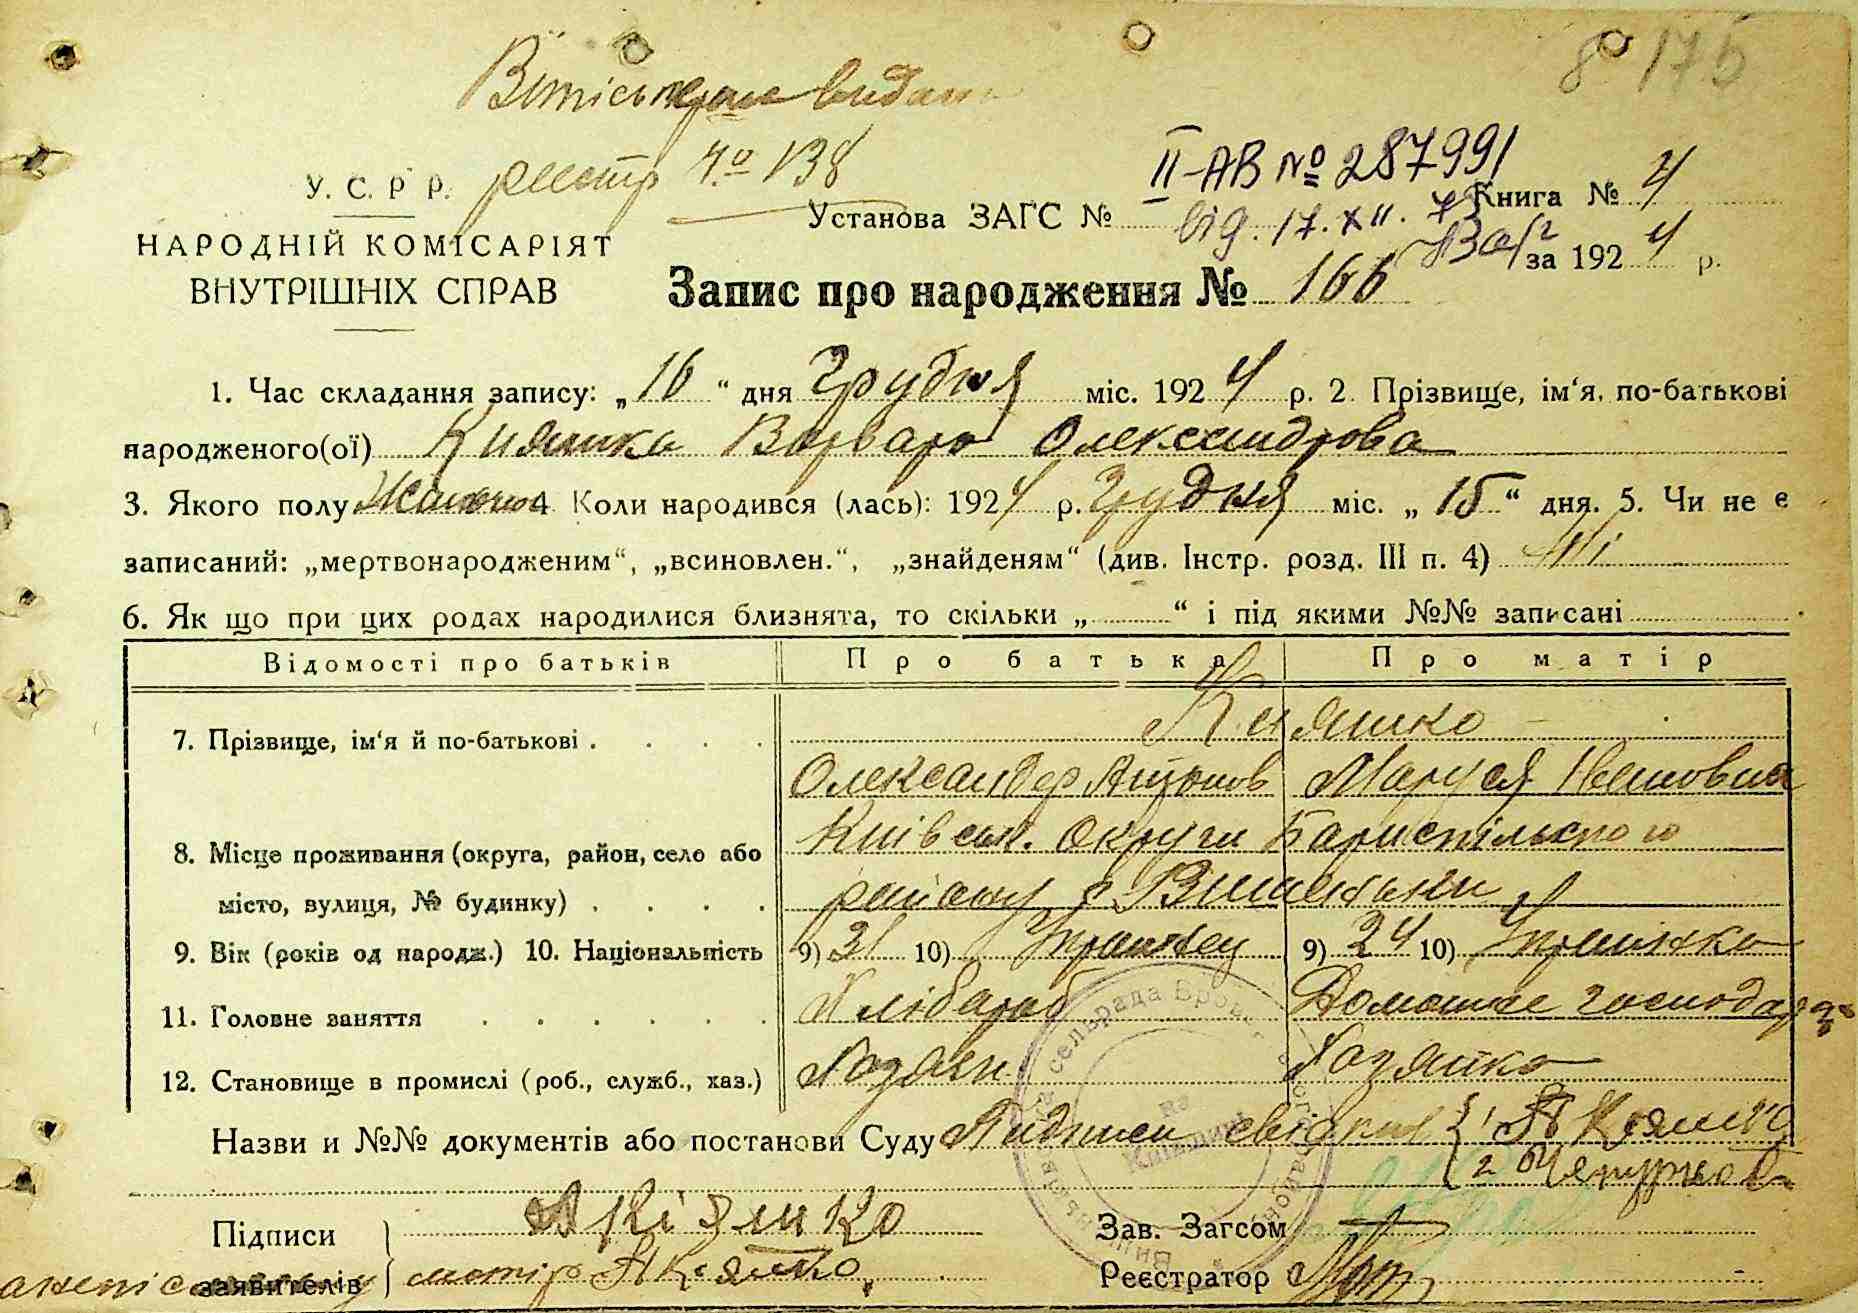 8 175
видан
реестр 138
II-АВ № 287991
У. С. Р Р.
Установа ЗАГС № від. 17. XII. 7
Книга № 4
НАРОДНІЙ КОМІСАРІЯТ
ВНУТРІШНІХ СПРАВ
за 1924 р.
Запис про народження № 166
1. Час складання запису: „16“ дня Грудня міс. 1924 р. 2. Прізвище, ім‘я, по-батькові
народженого(ої) Кияшко Варвара Олександрова
3. Якого полу Жіночого 4 Коли народився (лась): 1924 р. Грудня міс. „15“ дня. 5. Чи не є
записаний: „мертвонародженим“, „всиновлен.“, „знайденям“ (див. Інстр. розд. III п. 4) Ні
6. Як що при цих родах народилися близнята, то скільки „ “ і під якими №№ записані
Відомості про батьків Про батька Про матір
7. Прізвище, ім‘я й по-батькові . . . . Кияшко
Олександер Антонов Маруся
8. Місце проживання (округа, район, село або Київськ. округи Бариспільського
місто, вулиця, № будинку) . . . . району с Вишеньки
9. Вік (років од народж.) 10. Національність 9) 31 10) Українец 9) 24 10) Українка
11. Головне заняття . . . . . . Хлібароб Домашнє господар
12. Становище в промислі (роб., служб., хаз.) Хозяин Хозяйка
Назви и №№ документів або постанови Суду Підписи свідків { 1 Кияшко
2
Підписи
заявителів } А Кіяшко
матір Кияшко
Зав. Загсом
Реєстратор
сельрада
Київщині